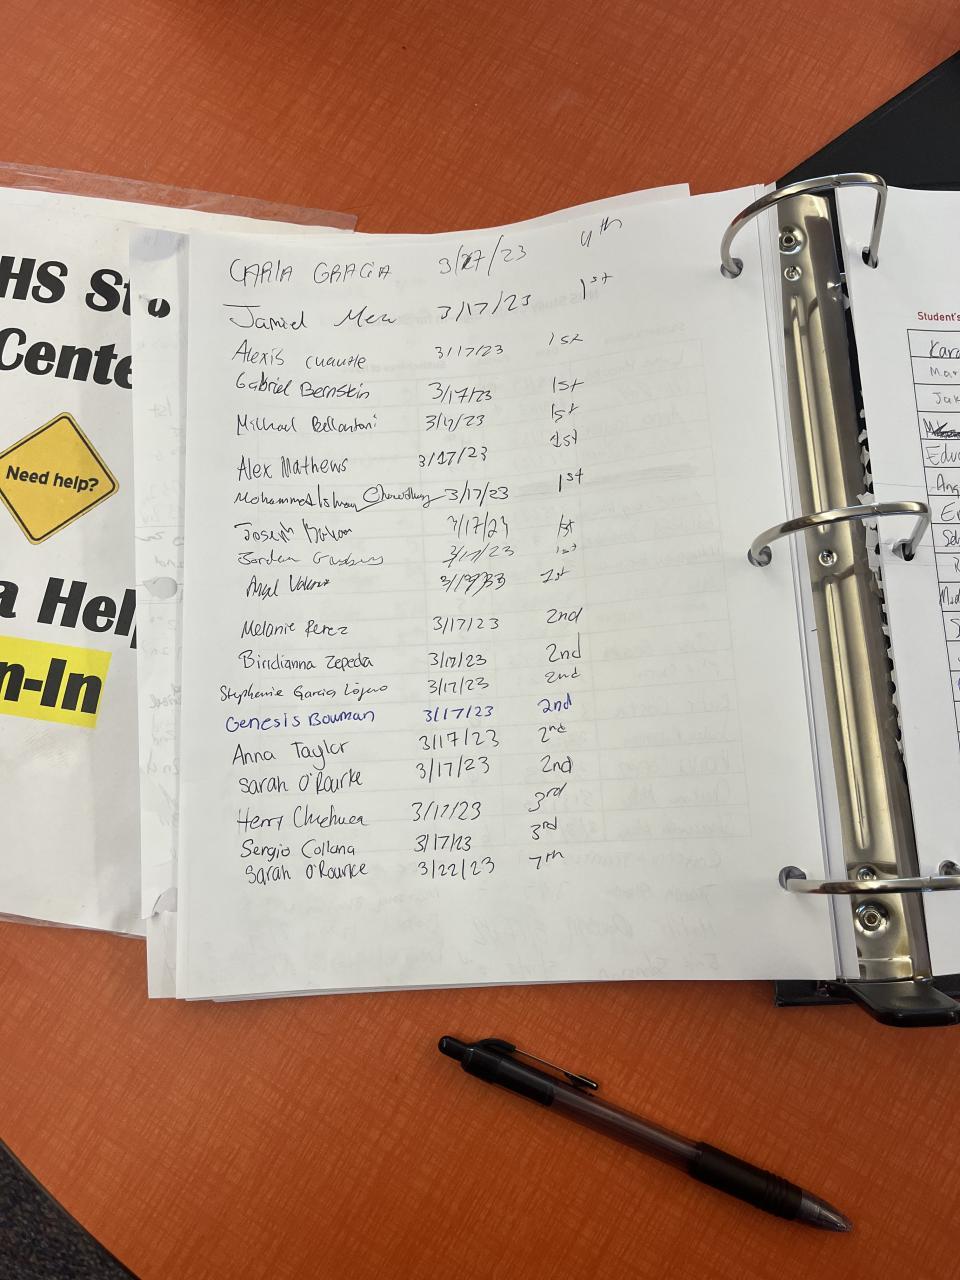 HS Stu
Cente
Need help?
a Help
n-In
CARLA GRACIA 3/27/23 4th
Jamiel Mez 3/17/23 1st
Alexis Cuautle 3/17/23 1st
Gabriel Bernstein 3/17/23 1st
Michael Bellantoni 3/17/23 1st
Alex Mathews 3/17/23 1st
Mohammed Chowdhury 3/17/23 1st
Joseph 1st
Jordan 3/17/23 1st
Angel 1st
Melanie Perez 3/17/23 2nd
Biridianna Zepeda 3/17/23 2nd
Stephanie Garcia 3/17/23 2nd
Genesis Bowman 3/17/23 2nd
Anna Taylor 3/17/23 2nd
Sarah O'Rourke 3/17/23 2nd
Henry 3/17/23 3rd
Sergio Collana 3/17/23 3rd
Sarah O'Rourke 3/22/23 7th
Student's
Kara
Mar
Jak
Edu
Ang